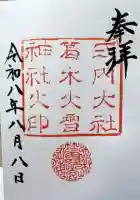 奉拝
式内大社
葛木火雷
神社之印
令和八年八月八日